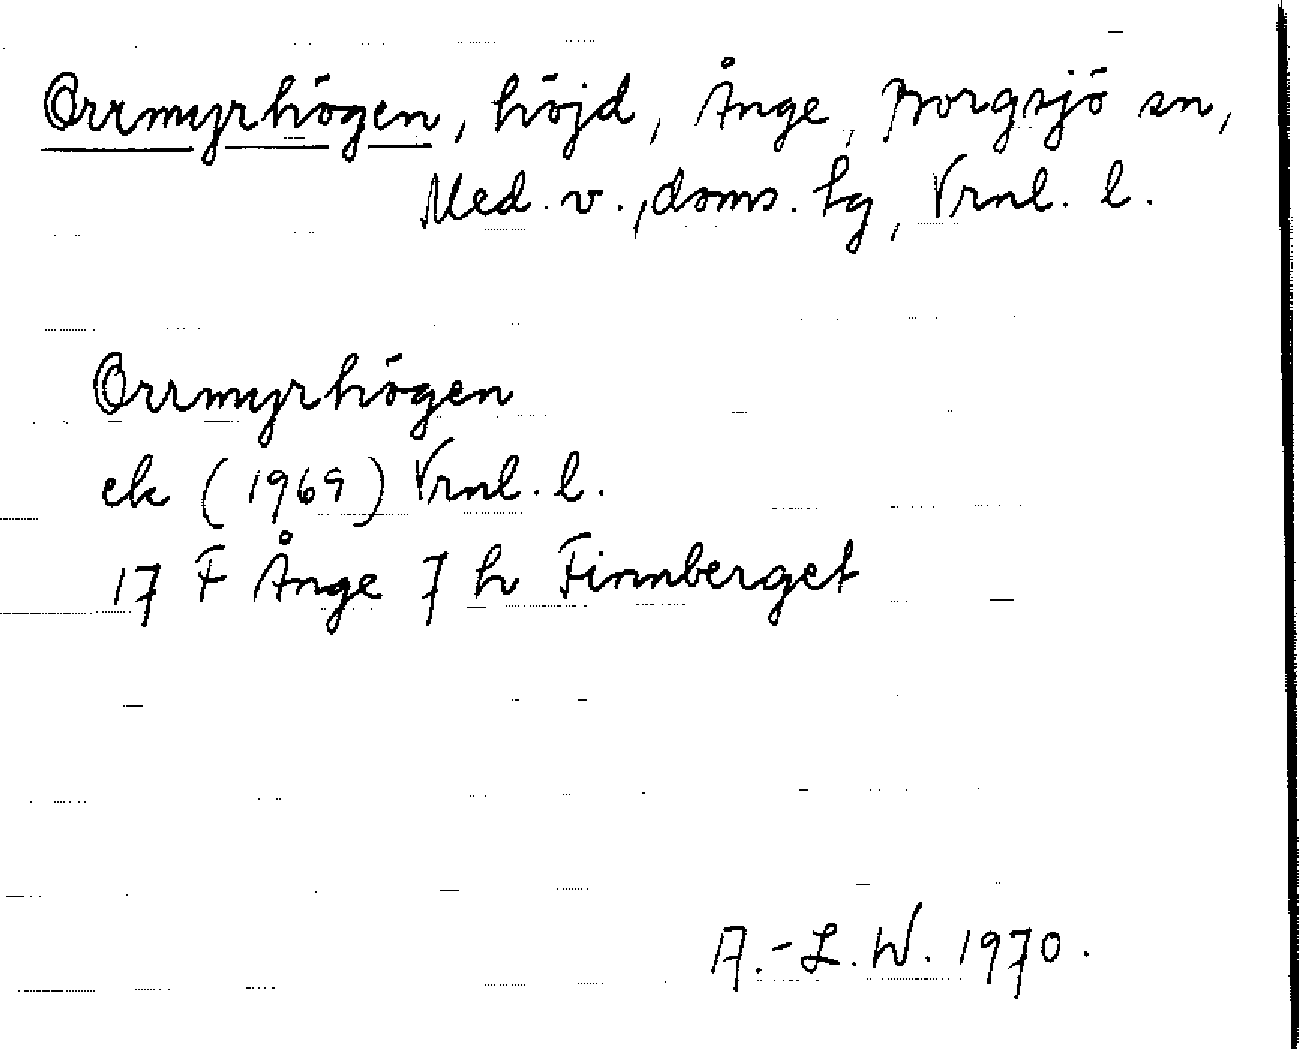 Orrmyrhögen, höjd, Ånge, Borgsjö sn,
Med. v., doms. hg, Vrnl. l.
Orrmyrhögen
ek (1969) Vrnl. l.
17 F Ånge 7 h Finnberget
A.-L. W. 1970.